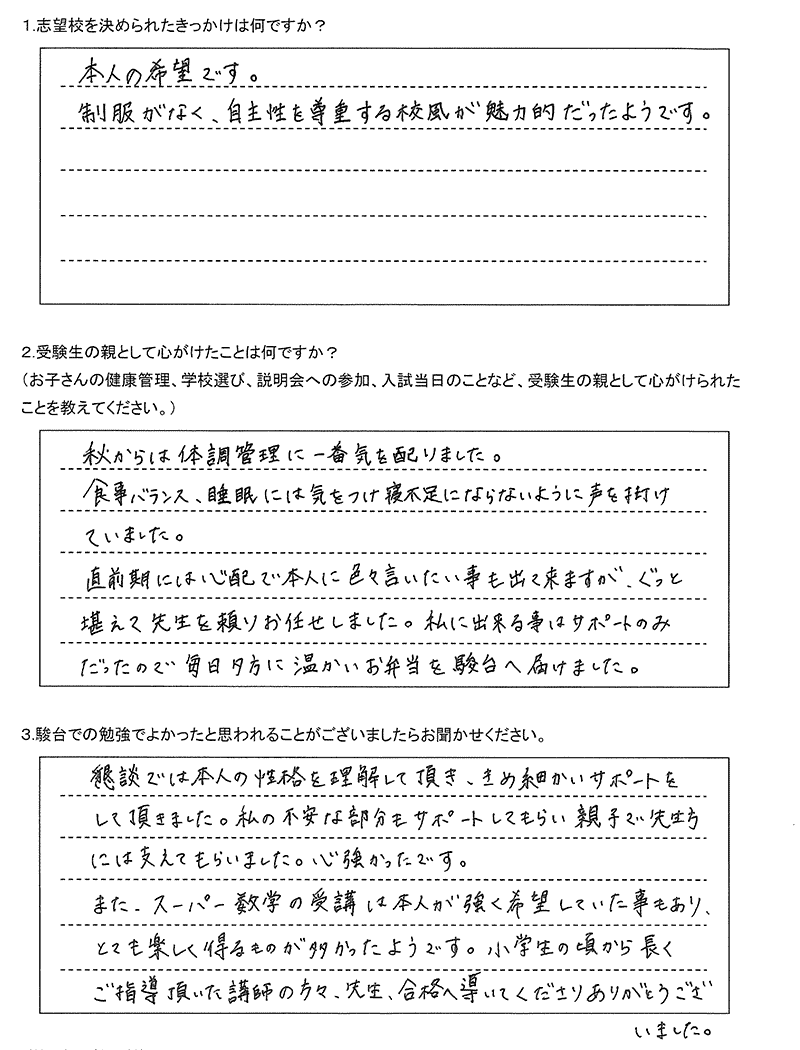 1.志望校を決められたきっかけは何ですか？
本人の希望です。
制服がなく、自主性を尊重する校風が魅力的だったようです。
2.受験生の親として心がけたことは何ですか？
（お子さんの健康管理、学校選び、説明会への参加、入試当日のことなど、受験生の親として心がけられた
ことを教えてください。）
秋からは体調管理に一番気を配りました。
食事バランス、睡眠には気をつけ寝不足にならないように声を掛け
ていました。
直前期には心配で本人に色々言いたい事も出て来ますが、ぐっと
堪えて先生を頼りお任せしました。私に出来る事はサポートのみ
だったので毎日夕方に温かいお弁当を駿台へ届けました。
3.駿台での勉強でよかったと思われることがございましたらお聞かせください。
懇談では本人の性格を理解して頂き、きめ細かいサポートを
して頂きました。私の不安な部分もサポートしてもらい親子で先生方
には支えてもらいました。心強かったです。
また、スーパー数学の受講は本人が強く希望していた事もあり、
とても楽しく得るものが多かったようです。小学生の頃から長く
ご指導頂いた講師の方々、先生、合格へ導いてくださりありがとうござ
いました。